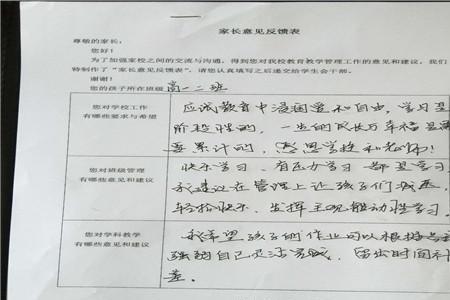 家长意见反馈表
尊敬的家长：
您好！
为了加强家校之间的交流与沟通，得到您对我校教育教学管理工作的意见和建议，我们
特制作了“家长意见反馈表”，请您认真填写之后递交给学生会干部。
谢谢！
您的孩子所在班级 高一二班
您对学校工作
有哪些要求与希望
应试教育中浸润爱和自由，学习是
阶段性的，一生的成长万幸福是需
要累计的，感恩学校和老师！
您对班级管理
有哪些意见和建议
快乐学习，有压力学习 都是学习
建议在管理上让孩子们减压，
轻松快乐，发挥主观能动性学习
您对学科教学
有哪些意见和建议
我希望孩子的作业可以根据
自己是否完成，留出时间补
差。